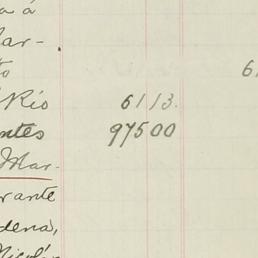 a á
Mar-
to
Rio 6113.
ntes 97500
Mar-
rante
dena,
Nicolás